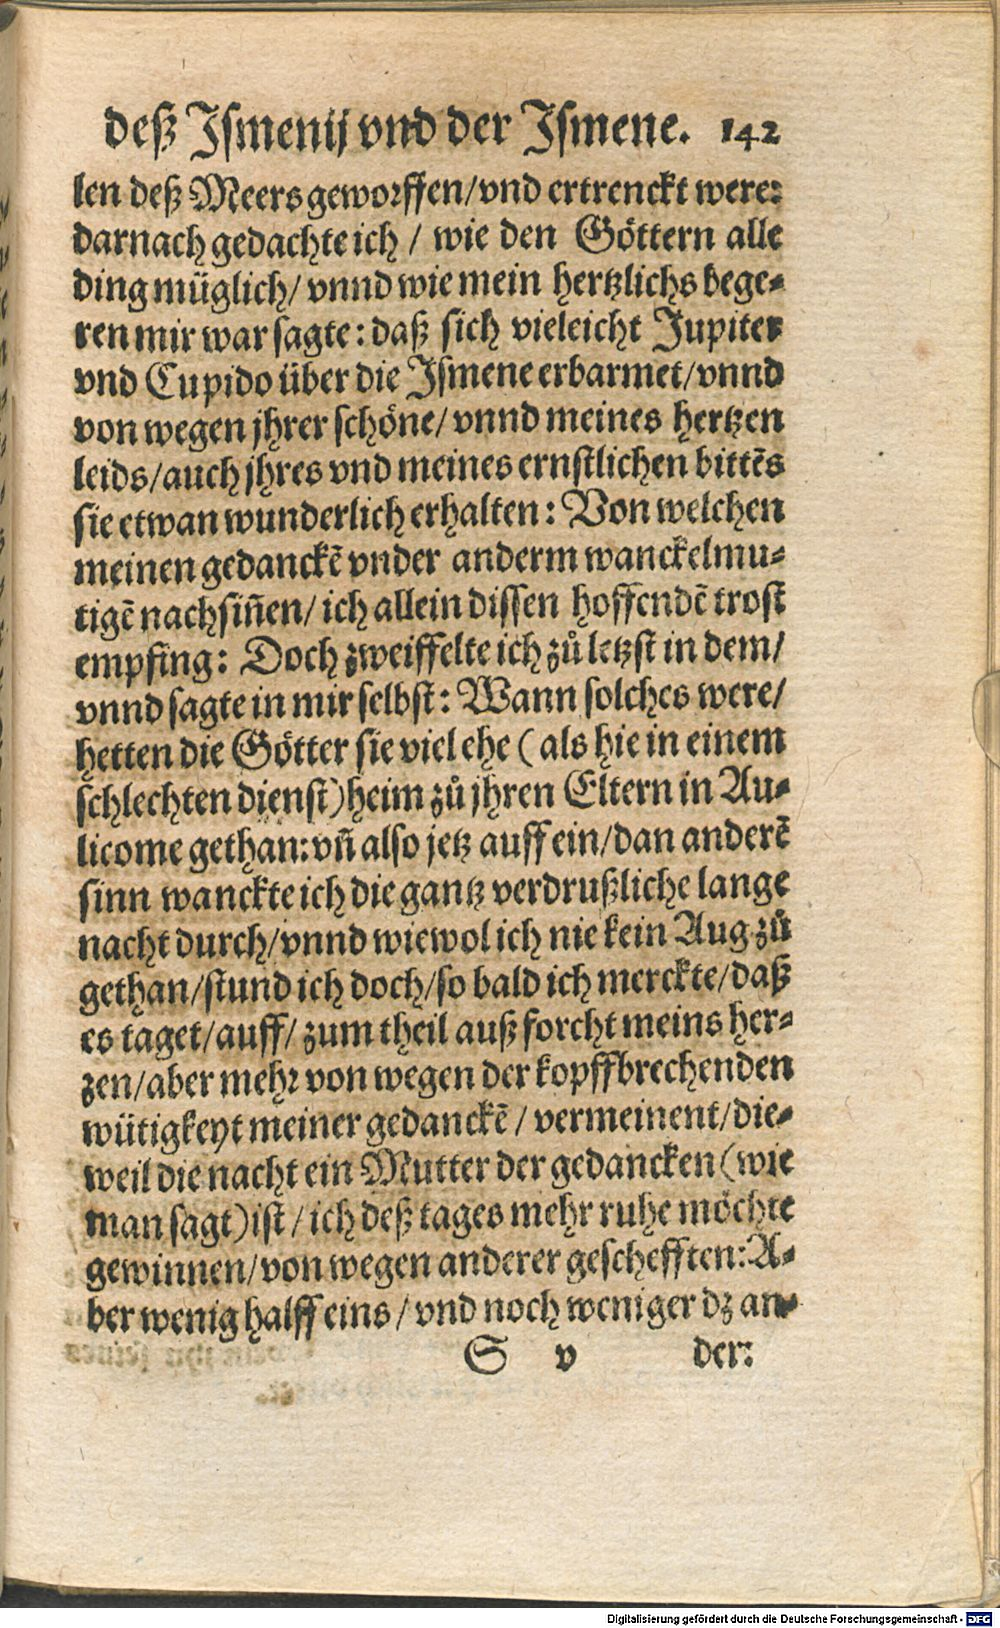 deß Jſmenij vnd der Jſmene. 142
len deß Meers geworffen/vnd ertrenckt were:
darnach gedachte ich / wie den Göttern alle
ding müglich/ vnnd wie mein hertzlichs bege-
ren mir war ſagte: daß ſich vieleicht Jupiter
vnd Cupido über die Jſmene erbarmet/vnnd
von wegen jhrer ſchöne/ vnnd meines hertzen
leids/auch jhres vnd meines ernſtlichen bittẽs
ſie etwan wunderlich erhalten: Von welchen
meinen gedanckẽ vnder anderm wanckelmu-
tigẽ nachſiñen/ ich allein diſſen hoffendẽ troſt
empfing: Doch zweiffelte ich zů letzſt in dem/
vnnd ſagte in mir ſelbſt: Wann ſolches were/
hetten die Götter ſie viel ehe ( als hie in einem
ſchlechten dienſt)heim zů jhren Eltern in Au-
licome gethan: vñ alſo jetz auff ein/dan anderẽ
ſinn wanckte ich die gantz verdrußliche lange
nacht durch/vnnd wiewol ich nie kein Aug zů
gethan/ſtund ich doch/ſo bald ich merckte/daß
es taget/auff/ zum theil auß forcht meins her-
zen/aber mehr von wegen der kopffbrechenden
wütigkeyt meiner gedanckẽ / vermeinent/die-
weil die nacht ein Mutter der gedancken(wie
man ſagt)iſt / ich deß tages mehr ruhe möchte
gewinnen/von wegen anderer geſchefften: A-
ber wenig halff eins / vnd noch weniger dz an-
S v der:
Digitalisierung gefördert durch die Deutsche Forschungsgemeinschaft - DFG